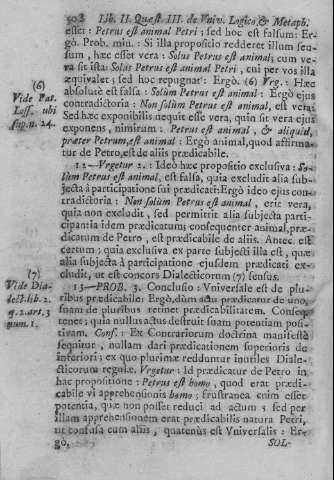 508 Lib. II. Quæst. III. de Vniv. Logico, & Metaph.
esset: Petrus est animal Petri; sed hoc est falsum: Er-
gò. Prob. min. Si illa propositio redderet illum sen-
sum, hæc esset vera: Solus Petrus est animal; cum ve-
ra sit ista: Solus Petrus est animal Petri, cui per vos illa
æquivalet; sed hoc repugnat: Ergò. (6) Vrg. Hæc
absolutè est falsa: Solùm Petrus est animal: Ergò ejus
contradictoria: Non solùm Petrus est animal, est vera:
Sed hæc exponibilis nequit esse vera, quin sit vera ejus
exponens, nimirum: Petrus est animal, & aliquid,
præter Petrum, est animal: Ergò animal, quod affirma-
tur de Petro, est de aliis prædicabile.
12 — Vrgetur 2.: Ideò hæc propositio exclusiva: So-
lùm Petrus est animal, est falsa, quia excludit alia sub-
jecta à participatione sui prædicati: Ergò ideo ejus con-
tradictoria: Non solùm Petrus est animal, erit vera,
quia non excludit, sed permittit alia subjecta parti-
cipantia idem prædicatum; consequenter animal, præ-
dicatum de Petro, est prædicabile de aliis. Antec. est
certum; quia exclusiva ex parte subjecti illa est, quæ
alia subjecta à participatione ejusdem prædicati ex-
cludit, ut est concors Dialecticorum (7) sensus.
13 — PROB. 3. Conclusio: Vniversale est de plu-
ribus prædicabile: Ergò, dùm actu prædicatur de uno,
suam de pluribus retinet prædicabilitatem. Conseq.
tenet: quia nullus actus destruit suam potentiam posi-
tivam. Conf.: Ex Contrariorum doctrina manifestè
sequitur, nullam dari prædicationem superioris de
inferiori; ex quo plurimæ redduntur inutiles Diale-
cticorum regulæ. Vrgetur: Id prædicatur de Petro in
hac propositione: Petrus est homo, quod erat prædi-
cabile vi apprehensionis homo; frustranea enim esset
potentia, quæ non posset reduci ad actum; sed per
illam apprehensionem erat prædicabilis natura Petri,
ut confusa cum aliis, quatenùs est Vniversalis: Er-
gò, SOL-
(6)
Vide Pat.
Loss. ubi
sup. n. 24.
(7)
Vide Dia-
lect. lib. 2.
q. 2. art. 3
num. 1.